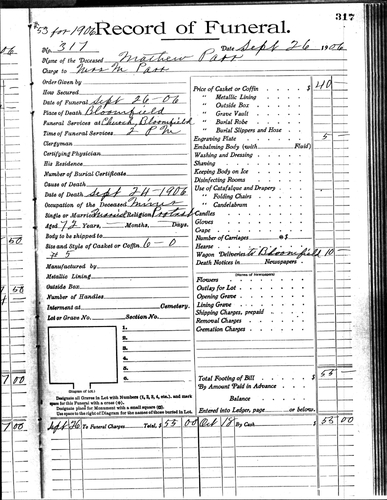 317
53 for 1906 Record of Funeral.
No. 317 Date Sept 26 1906
Name of the Deceased Mathew Parr
Charge to Mrs M Parr
Order Given by
How Secured
Date of Funeral Sept 26-06
Place of Death Bloomfield
Funeral Services at Church, Bloomfield
Time of Funeral Services 2 P M
Clergyman
Certifying Physician
His Residence
Number of Burial Certificate
Cause of Death
Date of Death Sept 24-1906
Occupation of the Deceased Miner
Single or Married Married Religion Protest
Aged 72 Years, Months, Days.
Body to be shipped to
Size and Style of Casket or Coffin 6-0
# 5
Manufactured by
Metallic Lining
Outside Box
Number of Handles
Interment at Cemetery.
Lot or Grave No. Section No.
1.
2.
3.
4.
5.
6.
(Diagram of Lot.)
Designate all Graves in Lot with Numbers (1, 2, 3, 4, etc.), and mark
space for this Funeral with a cross (+).
Designate place for Monument with a small square (□).
Use space to the right of Diagram for the names of those buried in Lot.
Sept 26 To Funeral Charges Total, $ 55 00
Price of Casket or Coffin $ 40
" Metallic Lining
" Outside Box
" Grave Vault
" Burial Robe
" Burial Slippers and Hose
Engraving Plate 5
Embalming Body (with Fluid)
Washing and Dressing
Shaving
Keeping Body on Ice
Disinfecting Rooms
Use of Catafalque and Drapery
" Folding Chairs
" Candelabrum
Candles
Gloves
Crape
Number of Carriages @ $
Hearse
Wagon Deliveries to Bloomfield 10
Death Notices in Newspapers
(Names of Newspapers)
Flowers
Outlay for Lot
Opening Grave
Lining Grave
Shipping Charges, prepaid
Removal Charges
Cremation Charges
Total Footing of Bill $ 55
By Amount Paid in Advance
Balance
Entered into Ledger, page or below.
Oct 18 By Cash $ 55 00